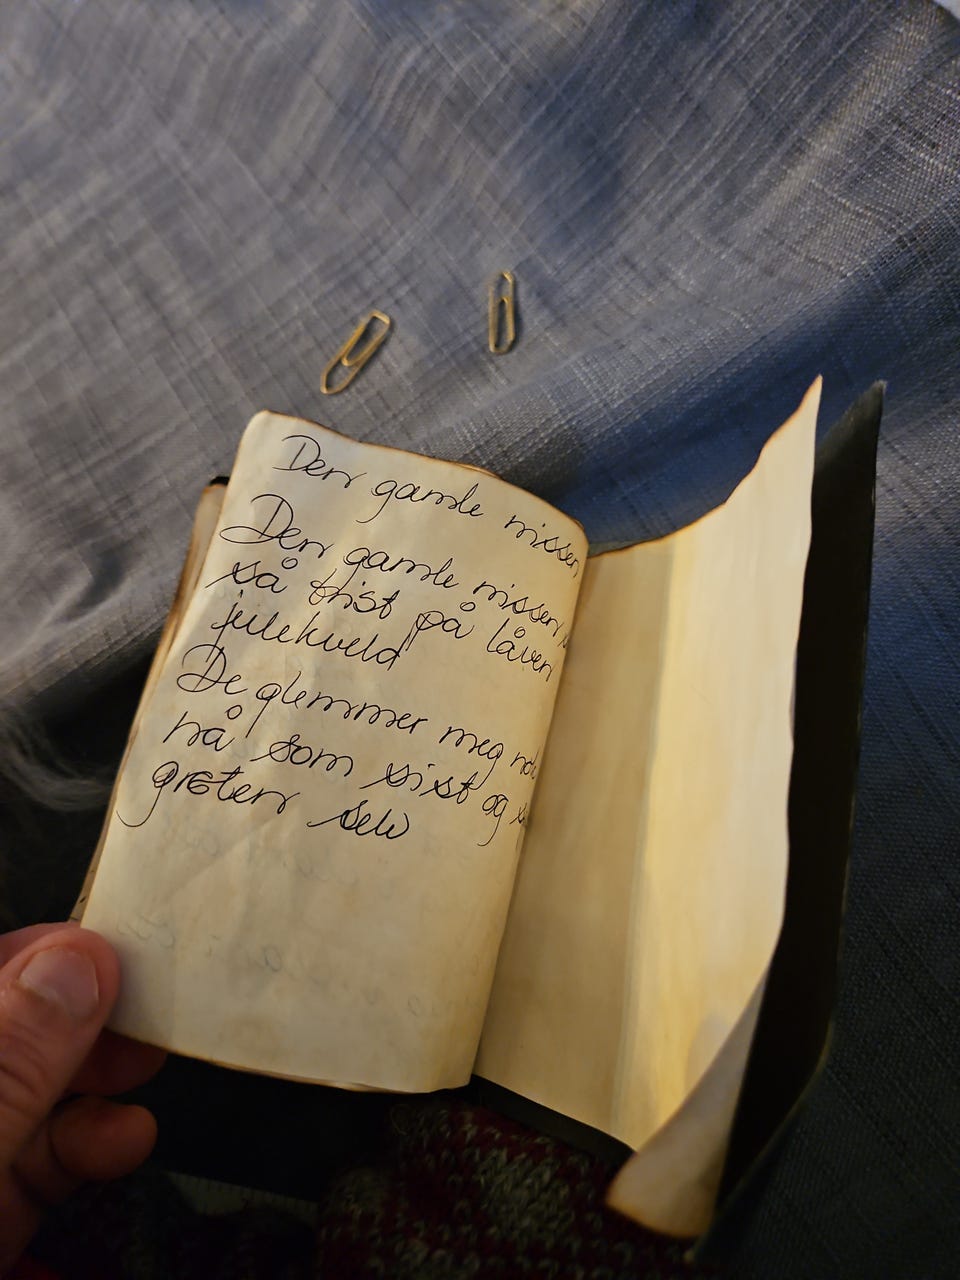 Den gamle nissen
Den gamle nissen
så trist på låven
julekveld
De glemmer meg
nå som sist og
grøten selv